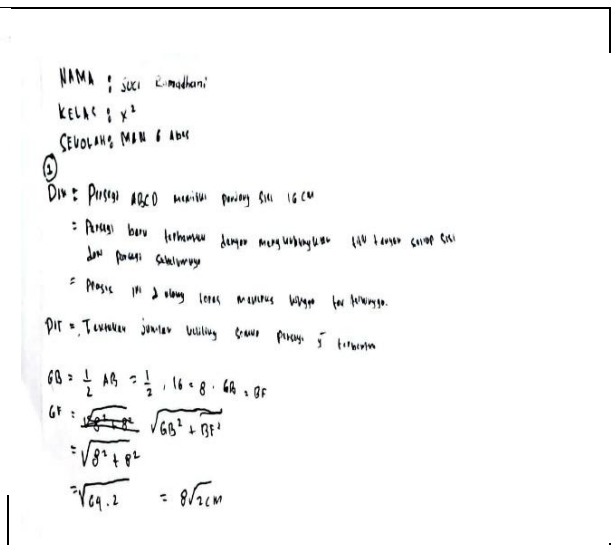 NAMA : Suci Ramadhani
KELAS : X²
SEKOLAH : MAN 6 Abes
①
Dik : Persegi ABCD memiliki panjang sisi 16 cm
= Persegi baru terbentuk dengan menghubungkan titik tengah setiap sisi
dari persegi sebelumnya
= Proses ini diulang terus menerus hingga tak terhingga.
DIT = Tentukan jumlah keliling semua persegi yg terbentuk
GB = 1/2 AB = 1/2 . 16 = 8 . GB = BF
GF = √GB² + BF²
= √8² + 8²
= √64.2 = 8√2 cm